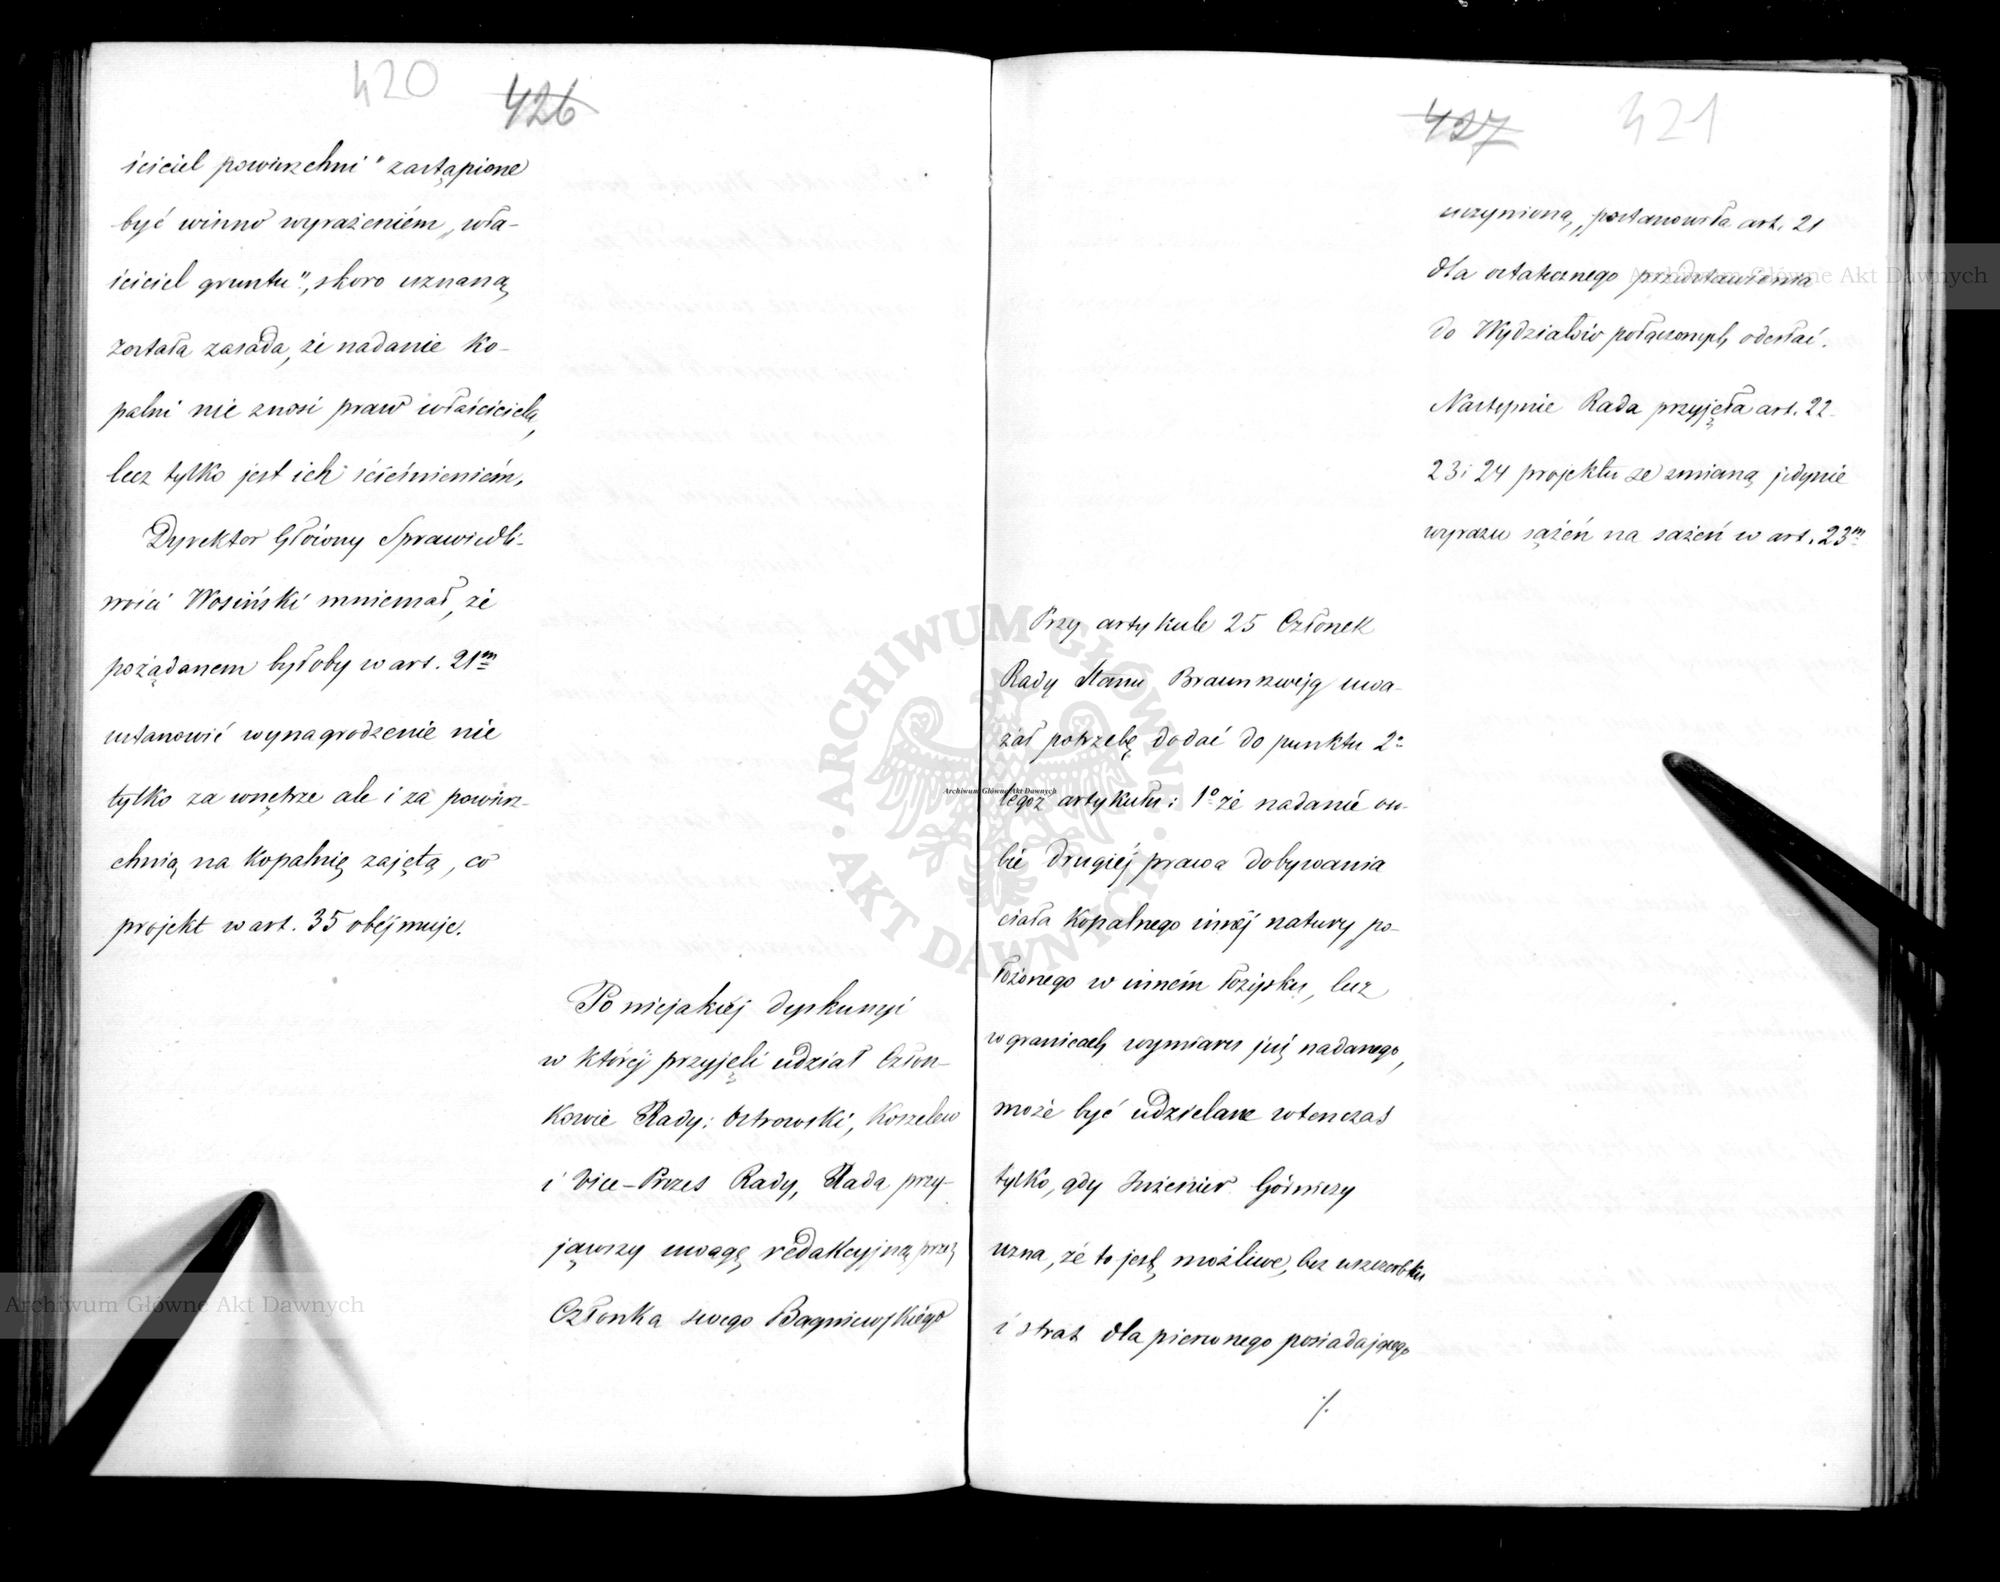 420
426
ściciel powierzchni" zastąpione
być winno wyrażeniém „wła-
ściciel gruntu", skoro uznaną
została zasada, że nadanie Ko-
palni nie znosi praw właściciela,
lecz tylko jest ich ścieśnieniém.
Dyrektor Główny Sprawiedli-
wości Wosiński mniemał, że
pożądanem byłoby w art. 21m
ustanowić wynagrodzenie nie
tylko za wnętrze ale i za powierz-
chnią na Kopalnię zajętą, co
projekt w art. 35 obéjmuje.
Po niejakiéj dyskussyi
w któréj przyjęli udział Człon-
kowie Rady: Ostrowski, Koszelew
i Vice-Prezes Rady, Rada przy-
jąwszy uwagę redakcyjną przez
Członka swego Bagniewskiégo
427
421
uczynioną, postanowiła art. 21
dla ostatecznego przedstawienia
do Wydziałów połączonych odesłać.
Następnie Rada przyjęła art. 22
23 i 24 projektu ze zmianą jedynie
wyrazu sążéń na sażeń w art. 23m
Przy artykule 25 Członek
Rady Stanu Braunszwejg uwa-
żał potrzebę dodać do punktu 2o
tegoż artykułu: 1o że nadanie oso-
bie drugiéj prawa dobywania
ciała Kopalnego innéj natury po-
łożonego w inném łożysku, lecz
w granicach wymiaru już nadanego,
może być udzielane wtenczas
tylko, gdy Inżenier Górniczy
uzna, że to jest możliwe, bez uszczerbku
i strat dla pierwszego posiadającego
./.
Archiwum Główne Akt Dawnych
Archiwum Główne Akt Dawnych
Archiwum Główne Akt Dawnych
ARCHIWUM GŁÓWNE · AKT DAWNYCH ·